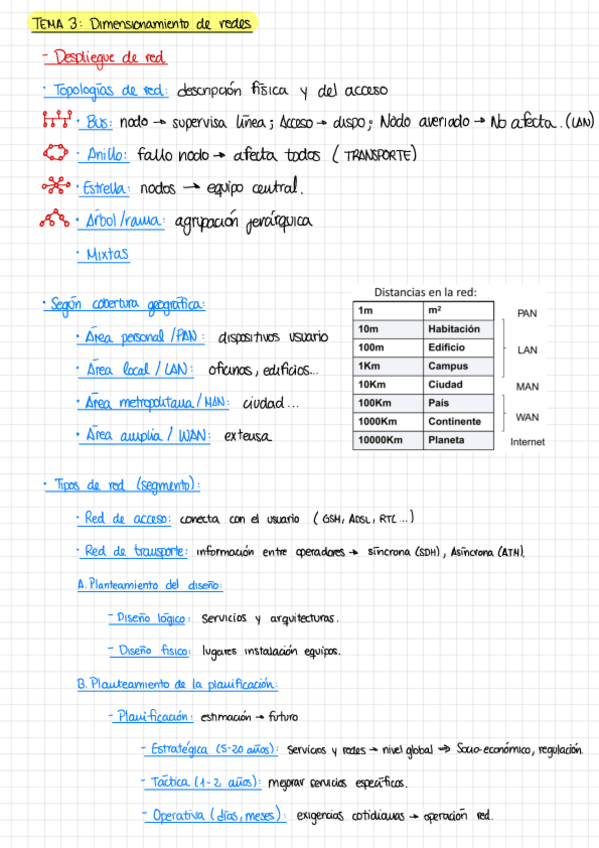 TEMA 3: Dimensionamiento de redes
- Despliegue de red
· Topologías de red: descripción física y del acceso
· Bus: nodo → supervisa línea; Acceso → dispo; Nodo averiado → No afecta. (LAN)
· Anillo: fallo nodo → afecta todos (TRANSPORTE)
· Estrella: nodos → equipo central.
· Árbol/rama: agrupación jerárquica
· Mixtas
· Según cobertura geográfica:
· Área personal /PAN: dispositivos usuario
· Área local / LAN: oficinas, edificios...
· Área metropolitana / MAN: ciudad...
· Área amplia / WAN: extensa
Distancias en la red:
1m m²
10m Habitación
100m Edificio
1Km Campus
10Km Ciudad
100Km País
1000Km Continente
10000Km Planeta
PAN
LAN
MAN
WAN
Internet
· Tipos de red (segmento):
· Red de acceso: conecta con el usuario (GSM, ADSL, RTC...)
· Red de transporte: información entre operadores → síncrona (SDH), Asíncrona (ATM).
A. Planteamiento del diseño:
- Diseño lógico: servicios y arquitecturas.
- Diseño físico: lugares instalación equipos.
B. Planteamiento de la planificación:
- Planificación: estimación → futuro
- Estratégica (5-20 años): servicios y redes → nivel global ⇒ Socio-económico, regulación.
- Táctica (1-2 años): mejorar servicios específicos.
- Operativa (días, meses): exigencias cotidianas → operación red.